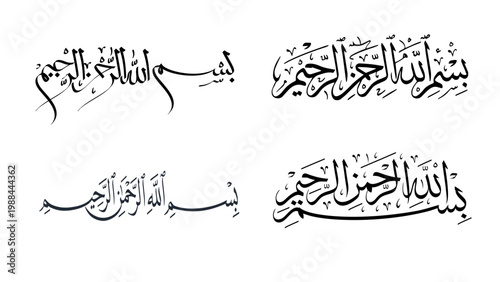 بسم الله الرحمن الرحيم
بسم الله الرحمن الرحيم
بسم الله الرحمن الرحيم
بسم الله الرحمن الرحيم
Adobe Stock | #1988444362